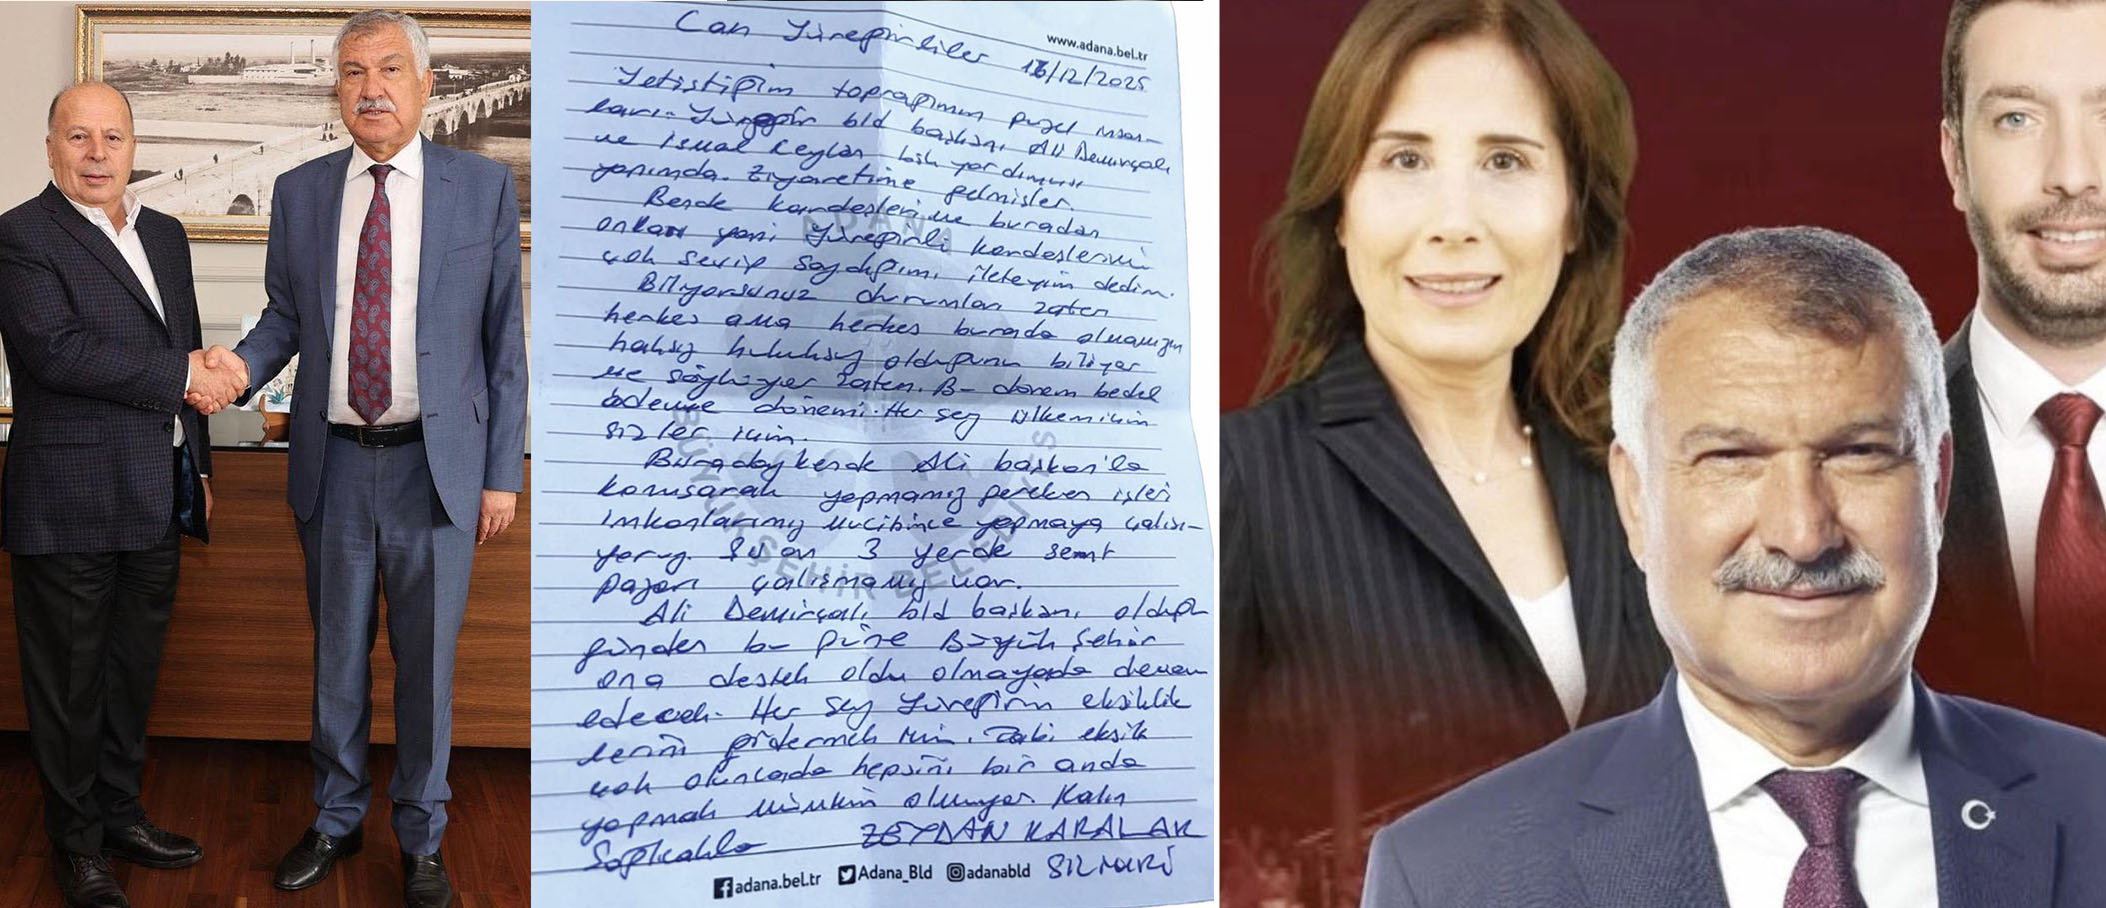 Can Yüreğirliler
www.adana.bel.tr
16/12/2025
Yetiştiğim toprağımın güzel insan-
ları. Yüreğir bld başkanı Ali Demirçalı
ve İsmail Ceylan bşk yardımcısı
yanımda. Ziyaretime gelmişler.
Bende kardeşlerime buradan
onları yani Yüreğirli kardeşlerimi
çok sevip saydığımı ileteyim dedim.
Biliyorsunuz durumları zaten
herkes ama herkes burada olmamızın
haksız hukuksuz olduğunu biliyor
ve söylüyor zaten. Bu dönem bedel
ödeme dönemi. Her şey ülkem için
sizler için.
Buradayken de Ali başkanla
konuşarak yapmamız gereken işleri
imkanlarımız mucibince yapmaya çalışı-
yoruz. Şu an 3 yerde semt
pazarı çalışmamız var.
Ali Demirçalı bld başkanı olduğu
günden bu güne Büyük Şehir
ona destek oldu olmayada devam
edecek. Her şey Yüreğirin eksiklik
lerini gidermek için. Tabi eksik
çok olunca da hepsini bir anda
yapmak mümkün olmuyor. Kalın
Sağlıcakla ZEYDAN KARALAR
SİLİVRİ
adana.bel.tr Adana_Bld adanabld
ADANA
BÜYÜKŞEHİR BELEDİYESİ